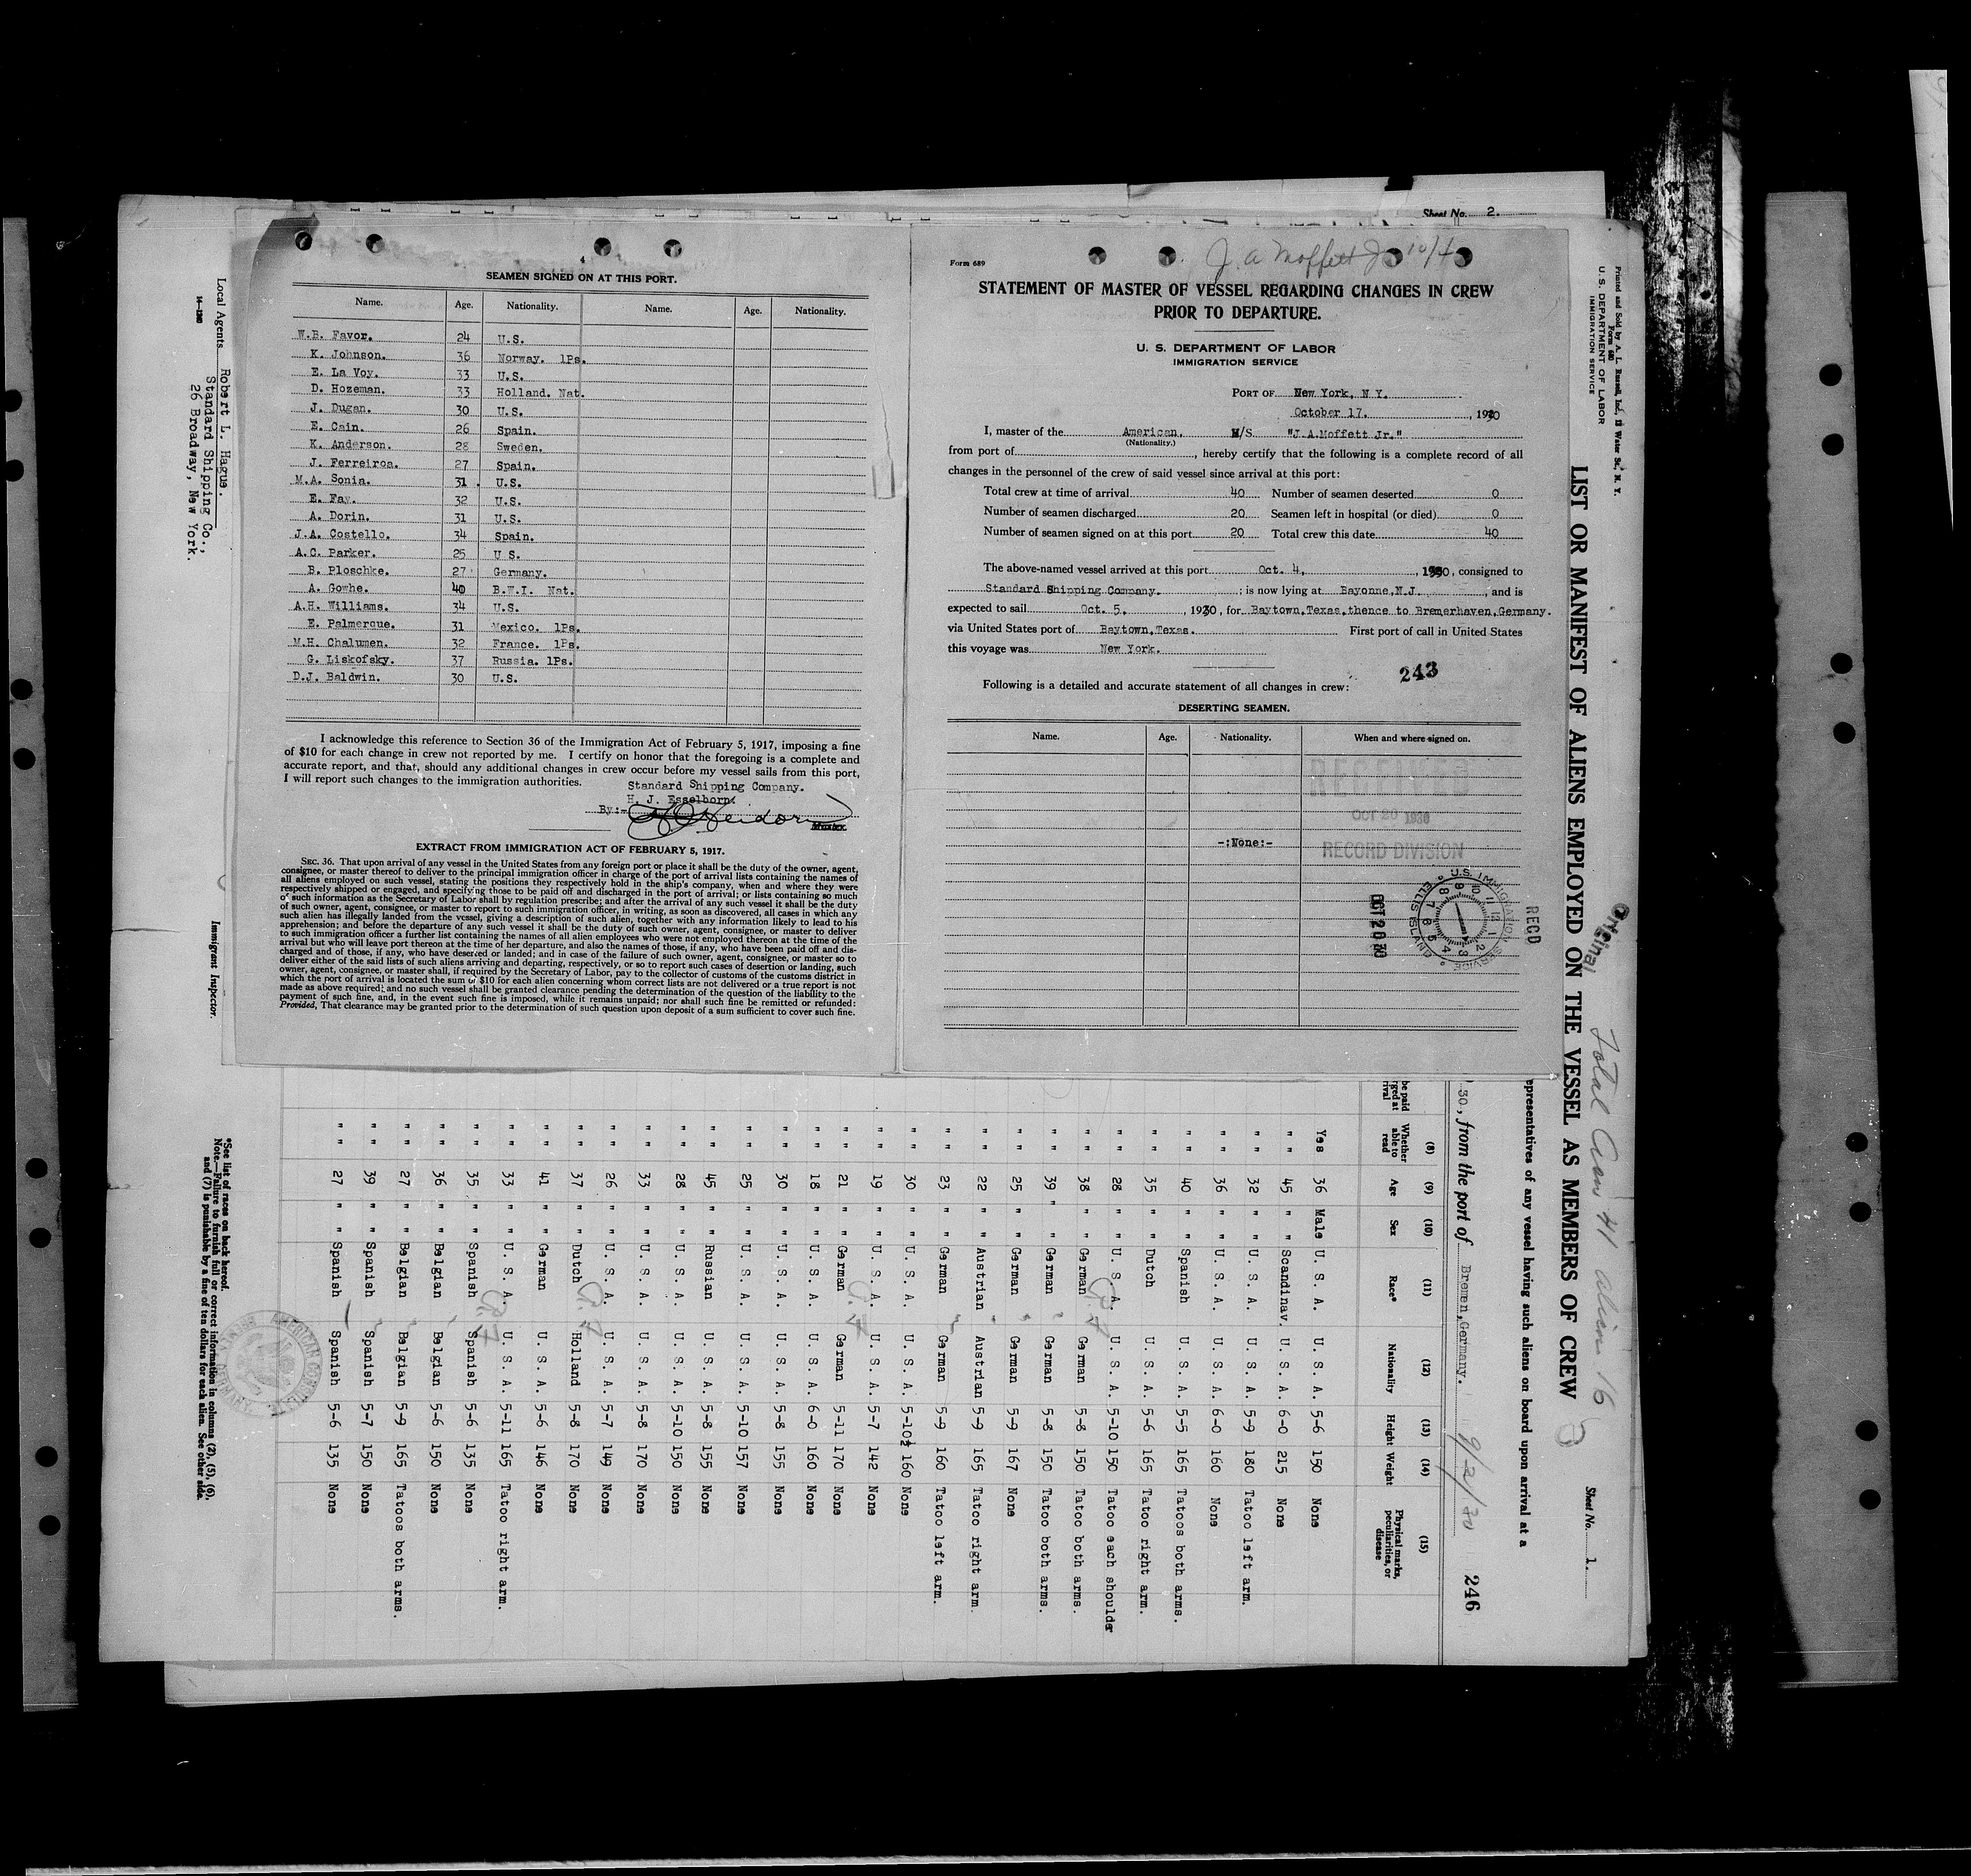 Sheet No. 2.
4
SEAMEN SIGNED ON AT THIS PORT.
Name. Age. Nationality. Name. Age. Nationality.
W.B. Favor. 24 U.S.
K. Johnson. 36 Norway. 1Ps.
E. La Voy. 33 U.S.
D. Hozeman. 33 Holland. Nat.
J. Dugan. 30 U.S.
E. Cain. 26 Spain.
K. Anderson. 28 Sweden.
J. Ferreiroa. 27 Spain.
M.A. Sonia. 31 U.S.
E. Fay. 32 U.S.
A. Dorin. 31 U.S.
J.A. Costello. 34 Spain.
A.C. Parker. 25 U S.
B. Ploschke. 27 Germany.
A. Gowhe. 40 B.W.I. Nat.
A.H. Williams. 34 U.S.
E. Palmerque. 31 Mexico. 1Ps.
M.H. Chalumen. 32 France. 1Ps.
G. Liskofsky. 37 Russia. 1Ps.
D.J. Baldwin. 30 U.S.
I acknowledge this reference to Section 36 of the Immigration Act of February 5, 1917, imposing a fine
of $10 for each change in crew not reported by me. I certify on honor that the foregoing is a complete and
accurate report, and that, should any additional changes in crew occur before my vessel sails from this port,
I will report such changes to the immigration authorities.
Standard Shipping Company.
H. J. Esselborn.
By:-
Master.
EXTRACT FROM IMMIGRATION ACT OF FEBRUARY 5, 1917.
SEC. 36. That upon arrival of any vessel in the United States from any foreign port or place it shall be the duty of the owner, agent,
consignee, or master thereof to deliver to the principal immigration officer in charge of the port of arrival lists containing the names of
all aliens employed on such vessel, stating the positions they respectively hold in the ship's company, when and where they were
respectively shipped or engaged, and specifying those to be paid off and discharged in the port of arrival; or lists containing so much
of such information as the Secretary of Labor shall by regulation prescribe; and after the arrival of any such vessel it shall be the duty
of such owner, agent, consignee, or master to report to such immigration officer, in writing, as soon as discovered, all cases in which any
such alien has illegally landed from the vessel, giving a description of such alien, together with any information likely to lead to his
apprehension; and before the departure of any such vessel it shall be the duty of such owner, agent, consignee, or master to deliver
to such immigration officer a further list containing the names of all alien employees who were not employed thereon at the time of the
arrival but who will leave port thereon at the time of her departure, and also the names of those, if any, who have been paid off and dis-
charged and of those, if any, who have deserted or landed; and in case of the failure of such owner, agent, consignee, or master so to
deliver either of the said lists of such aliens arriving and departing, respectively, or so to report such cases of desertion or landing, such
owner, agent, consignee, or master shall, if required by the Secretary of Labor, pay to the collector of customs of the customs district in
which the port of arrival is located the sum of $10 for each alien concerning whom correct lists are not delivered or a true report is not
made as above required; and no such vessel shall be granted clearance pending the determination of the question of the liability to the
payment of such fine, and, in the event such fine is imposed, while it remains unpaid; nor shall such fine be remitted or refunded:
Provided, That clearance may be granted prior to the determination of such question upon deposit of a sum sufficient to cover such fine.
J. A Moffett Jr 10/4
Form 689
STATEMENT OF MASTER OF VESSEL REGARDING CHANGES IN CREW
PRIOR TO DEPARTURE.
U. S. DEPARTMENT OF LABOR
IMMIGRATION SERVICE
PORT OF New York, N Y.
October 17. , 1930
I, master of the American. M/S. "J.A.Moffett Jr."
(Nationality.)
from port of , hereby certify that the following is a complete record of all
changes in the personnel of the crew of said vessel since arrival at this port:
Total crew at time of arrival 40 Number of seamen deserted 0
Number of seamen discharged 20 Seamen left in hospital (or died) 0
Number of seamen signed on at this port 20 Total crew this date 40
The above-named vessel arrived at this port Oct. 4, , 1930, consigned to
Standard Shipping Company. ; is now lying at Bayonne,N.J. , and is
expected to sail Oct. 5. , 1930, for Baytown,Texas,thence to Bremerhaven,Germany.
via United States port of Baytown,Texas. First port of call in United States
this voyage was New York.
243
Following is a detailed and accurate statement of all changes in crew:
DESERTING SEAMEN.
Name. Age. Nationality. When and where signed on.
RECEIVED
OCT 20 1930
RECORD DIVISION
-:None:-
RECD
U.S. IMMIGRATION SERVICE ELLIS ISLAND
OCT 20 30
Printed and Sold by A. L. Russell, Inc., 11 Water St., N. Y.
Form 680
U. S. DEPARTMENT OF LABOR
IMMIGRATION SERVICE
Original
Total Crew 41 aliens 16
Sheet No. 1.
LIST OR MANIFEST OF ALIENS EMPLOYED ON THE VESSEL AS MEMBERS OF CREW
3
epresentatives of any vessel having such aliens on board upon arrival at a
30, from the port of Bremen,Germany. 9/2/30 246
(8) (9) (10) (11) (12) (13) (14) (15)
Whether able to read Age Sex Race* Nationality Height Weight Physical marks, peculiarities, or disease
Yes 36 Male U. S. A. U. S. A. 5-6 150 None
" " 45 " Scandinav. U. S. A. 6-0 215 None
" " 32 " U. S. A. U. S. A. 5-9 180 Tatoo left arm.
" " 36 " U. S. A. U. S. A. 6-0 160 None
" " 40 " Spanish U. S. A. 5-5 165 Tatoos both arms.
" " 35 " " Dutch U. S. A. 5-6 165 Tatoo right arm.
" " 28 " " U. S. A. U. S. A. 5-10 150 Tatoo each shoulder
" " 38 " " German German 5-8 150 Tatoo both arms.
" " 39 " German German 5-8 150 Tatoo both arms.
" " 25 " " German German 5-9 167 None
" " 22 " " Austrian Austrian 5-9 165 Tatoo right arm.
" " 23 " " German German 5-9 160 Tatoo left arm.
" " 30 " " U. S. A. U. S. A. 5-10½ 160 None
" " 19 " " U. S. A. U. S. A. 5-7 142 None
" " 21 " " German German 5-11 170 None
" " 18 " " U. S. A. U. S. A. 6-0 160 None
" " 30 " " U. S. A. U. S. A. 5-8 155 None
" " 25 " " U. S. A. U. S. A. 5-10 157 None
" " 45 " " Russian U. S. A. 5-8 155 None
" " 28 " " U. S. A. U. S. A. 5-10 150 None
" " 33 " " U. S. A. U. S. A. 5-8 170 None
" " 26 " " U. S. A. U. S. A. 5-7 149 None
" " 37 " " Dutch Holland 5-8 170 None
" " 41 " " German U. S. A. 5-6 146 None
" " 33 " " U. S. A. U. S. A. 5-11 165 Tatoo right arm.
" " 35 " " Spanish Spanish 5-6 135 None
" " 36 " " Belgian Belgian 5-6 150 None
" " 27 " " Belgian Belgian 5-9 165 Tatoos both arms.
" " 39 " " Spanish Spanish 5-7 150 None
" " 27 " " Spanish Spanish 5-6 135 None
Local Agents Robert L. Hague.
Standard Shipping Co.,
26 Broadway, New York.
Immigrant Inspector.
*See list of races on back hereof.
Note.—Failure to furnish full or correct information in columns (2), (5), (6),
and (7) is punishable by a fine of ten dollars for each alien. See other side.